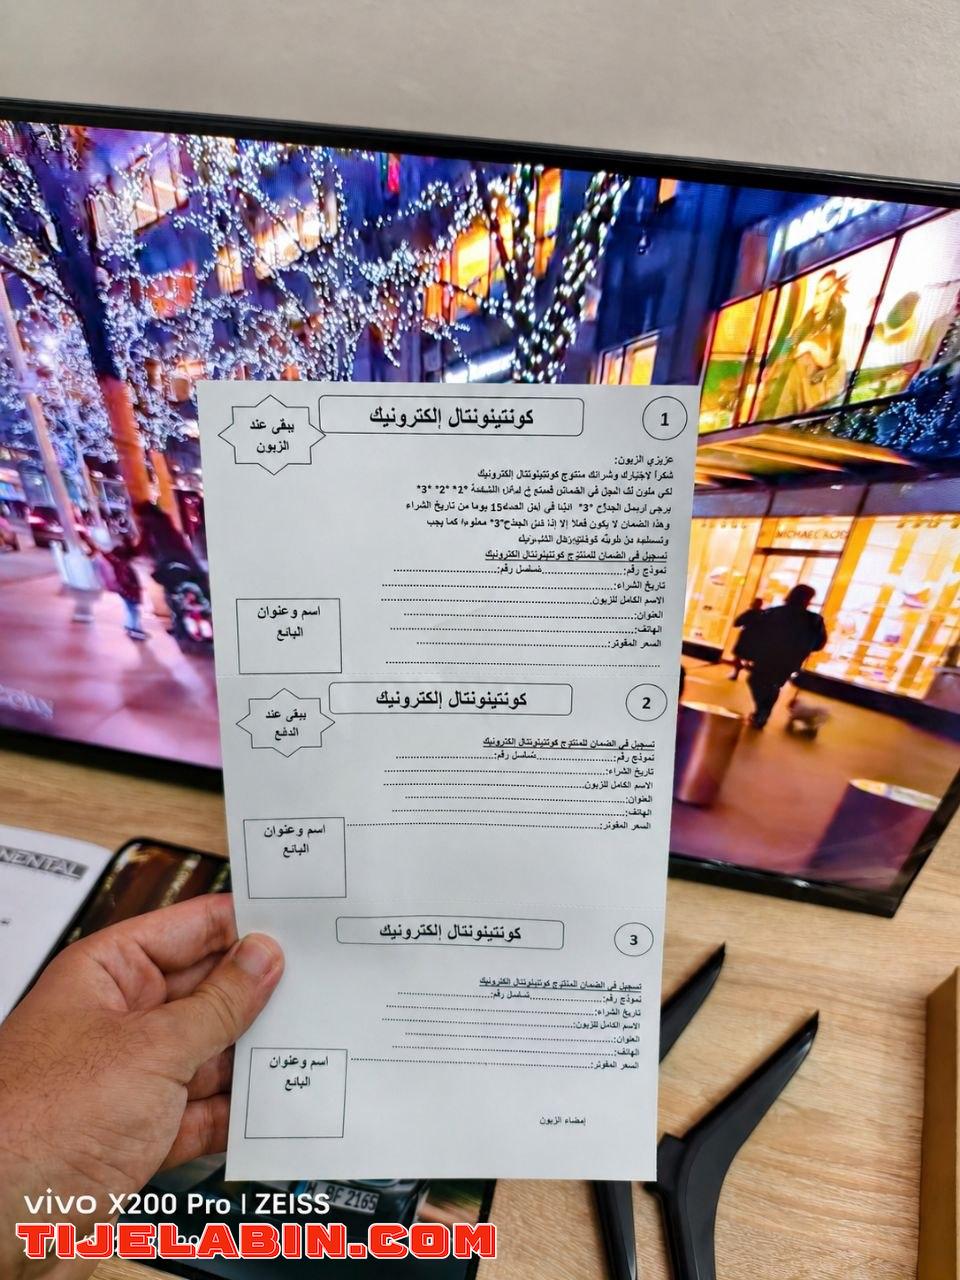 MICHAEL
MICHAEL KORS
1
كونتينونتال إلكترونيك
يبقى عند
الزبون
عزيزي الزبون:
شكرا لاختيارك وشرائك منتوج كونتينونتال إلكترونيك
*2* *2* *3*
يرجى ارسال *3* في 15 يوما من تاريخ الشراء
وهذا الضمان لا يكون فعلا إلا إذا *3* كما يجب
تسجيل في الضمان للمنتوج كونتينونتال إلكترونيك
نموذج رقم:......................تسلسل رقم:..........................
تاريخ الشراء:..........................................................
الاسم الكامل للزبون..........................................................
العنوان:..........................................................
الهاتف:..........................................................
السعر المفوتر:..........................................................
اسم وعنوان
البائع
2
كونتينونتال إلكترونيك
يبقى عند
الدفع
تسجيل في الضمان للمنتوج كونتينونتال إلكترونيك
نموذج رقم:......................تسلسل رقم:..........................
تاريخ الشراء:..........................................................
الاسم الكامل للزبون..........................................................
العنوان:..........................................................
الهاتف:..........................................................
السعر المفوتر:..........................................................
اسم وعنوان
البائع
3
كونتينونتال إلكترونيك
تسجيل في الضمان للمنتوج كونتينونتال إلكترونيك
نموذج رقم:......................تسلسل رقم:..........................
تاريخ الشراء:..........................................................
الاسم الكامل للزبون:..........................................................
العنوان:..........................................................
الهاتف:..........................................................
السعر المفوتر:..........................................................
اسم وعنوان
البائع
إمضاء الزبون
NENTAL
BF 2165
vivo X200 Pro | ZEISS
TIJELABIN.COM